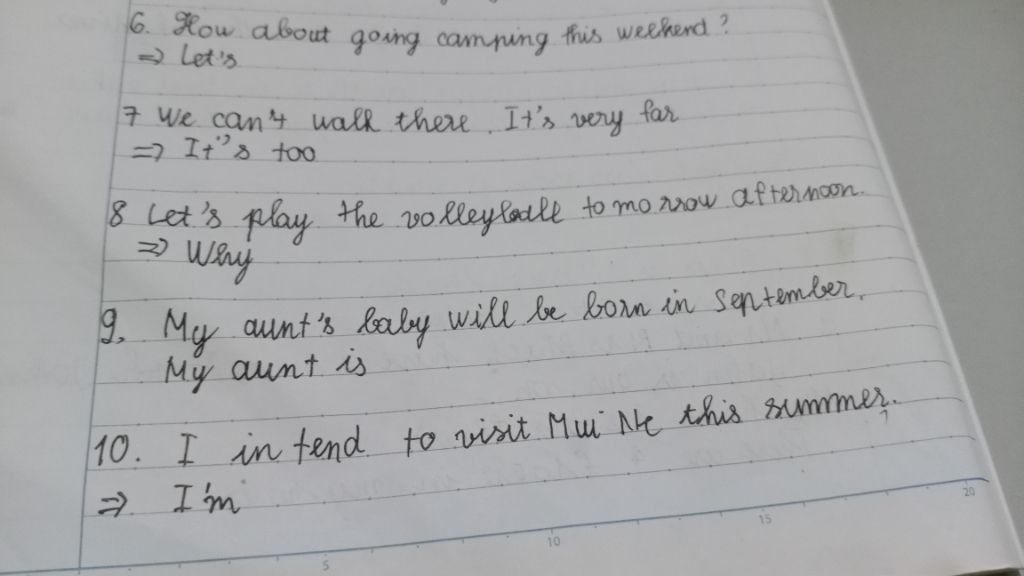 6. How about going camping this weekend?
=> Let's
7 We can't walk there. It's very far
=> It's too
8 Let's play the volleyball tomorrow afternoon.
=> Why
9. My aunt's baby will be born in September.
My aunt is
10. I intend to visit Mui Ne this summer.
=> I'm
5 10 15 20